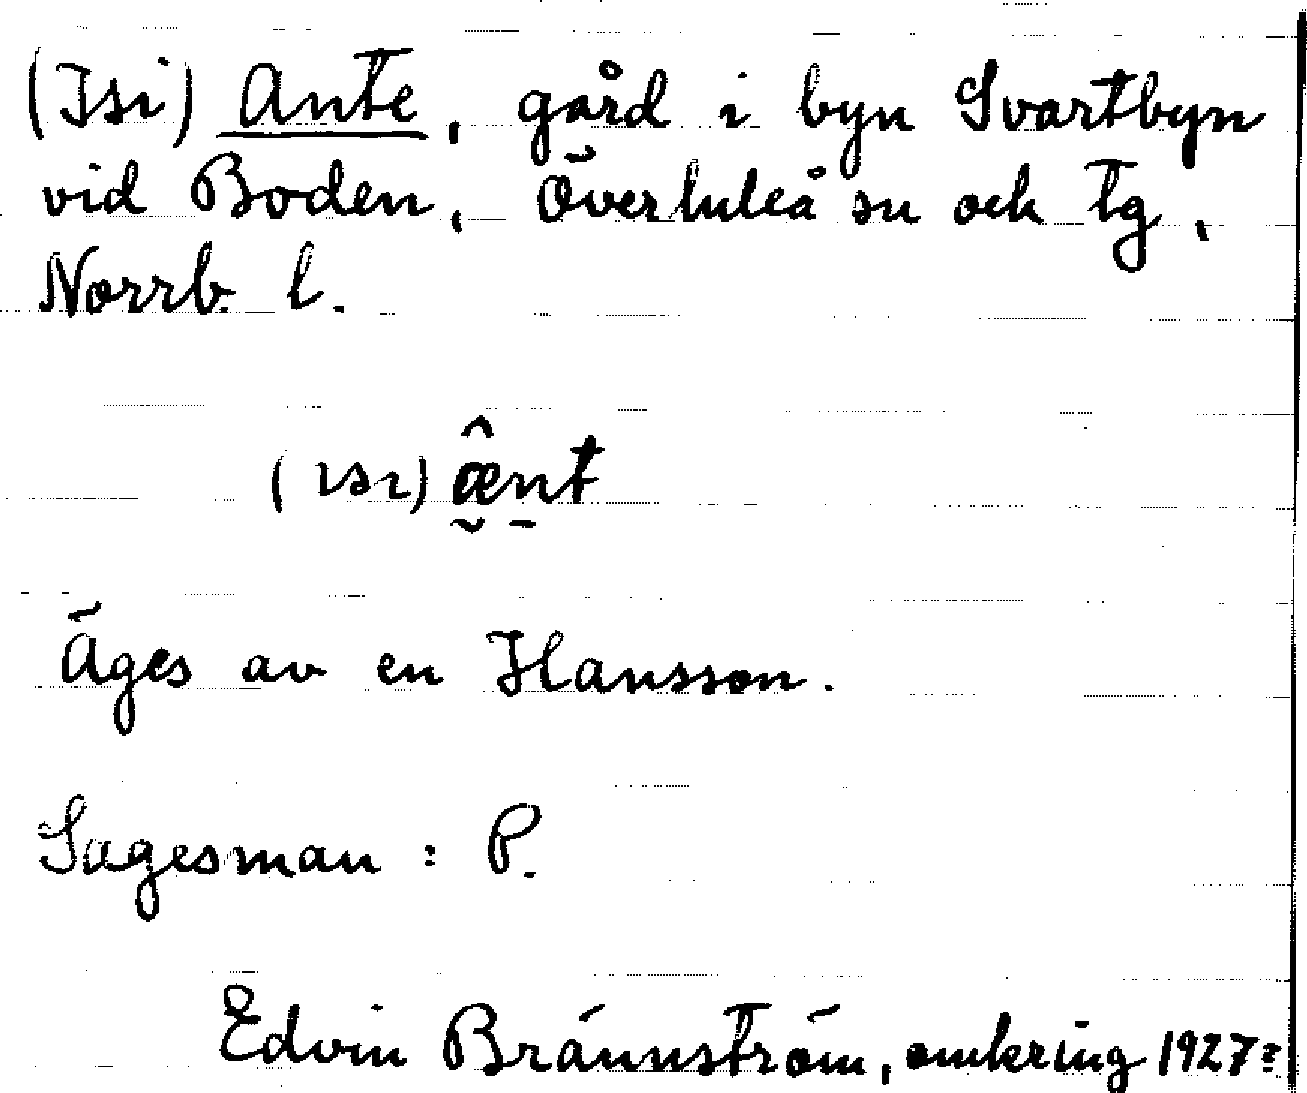 (Isi) Ante, gård i byn Svartbyn
vid Boden, Överluleå sn och tg,
Norrb. l.
(ısı) æ̯̂n̠t
Äges av en Hansson.
Sagesman: P.
Edvin Brännström, omkring 1927?